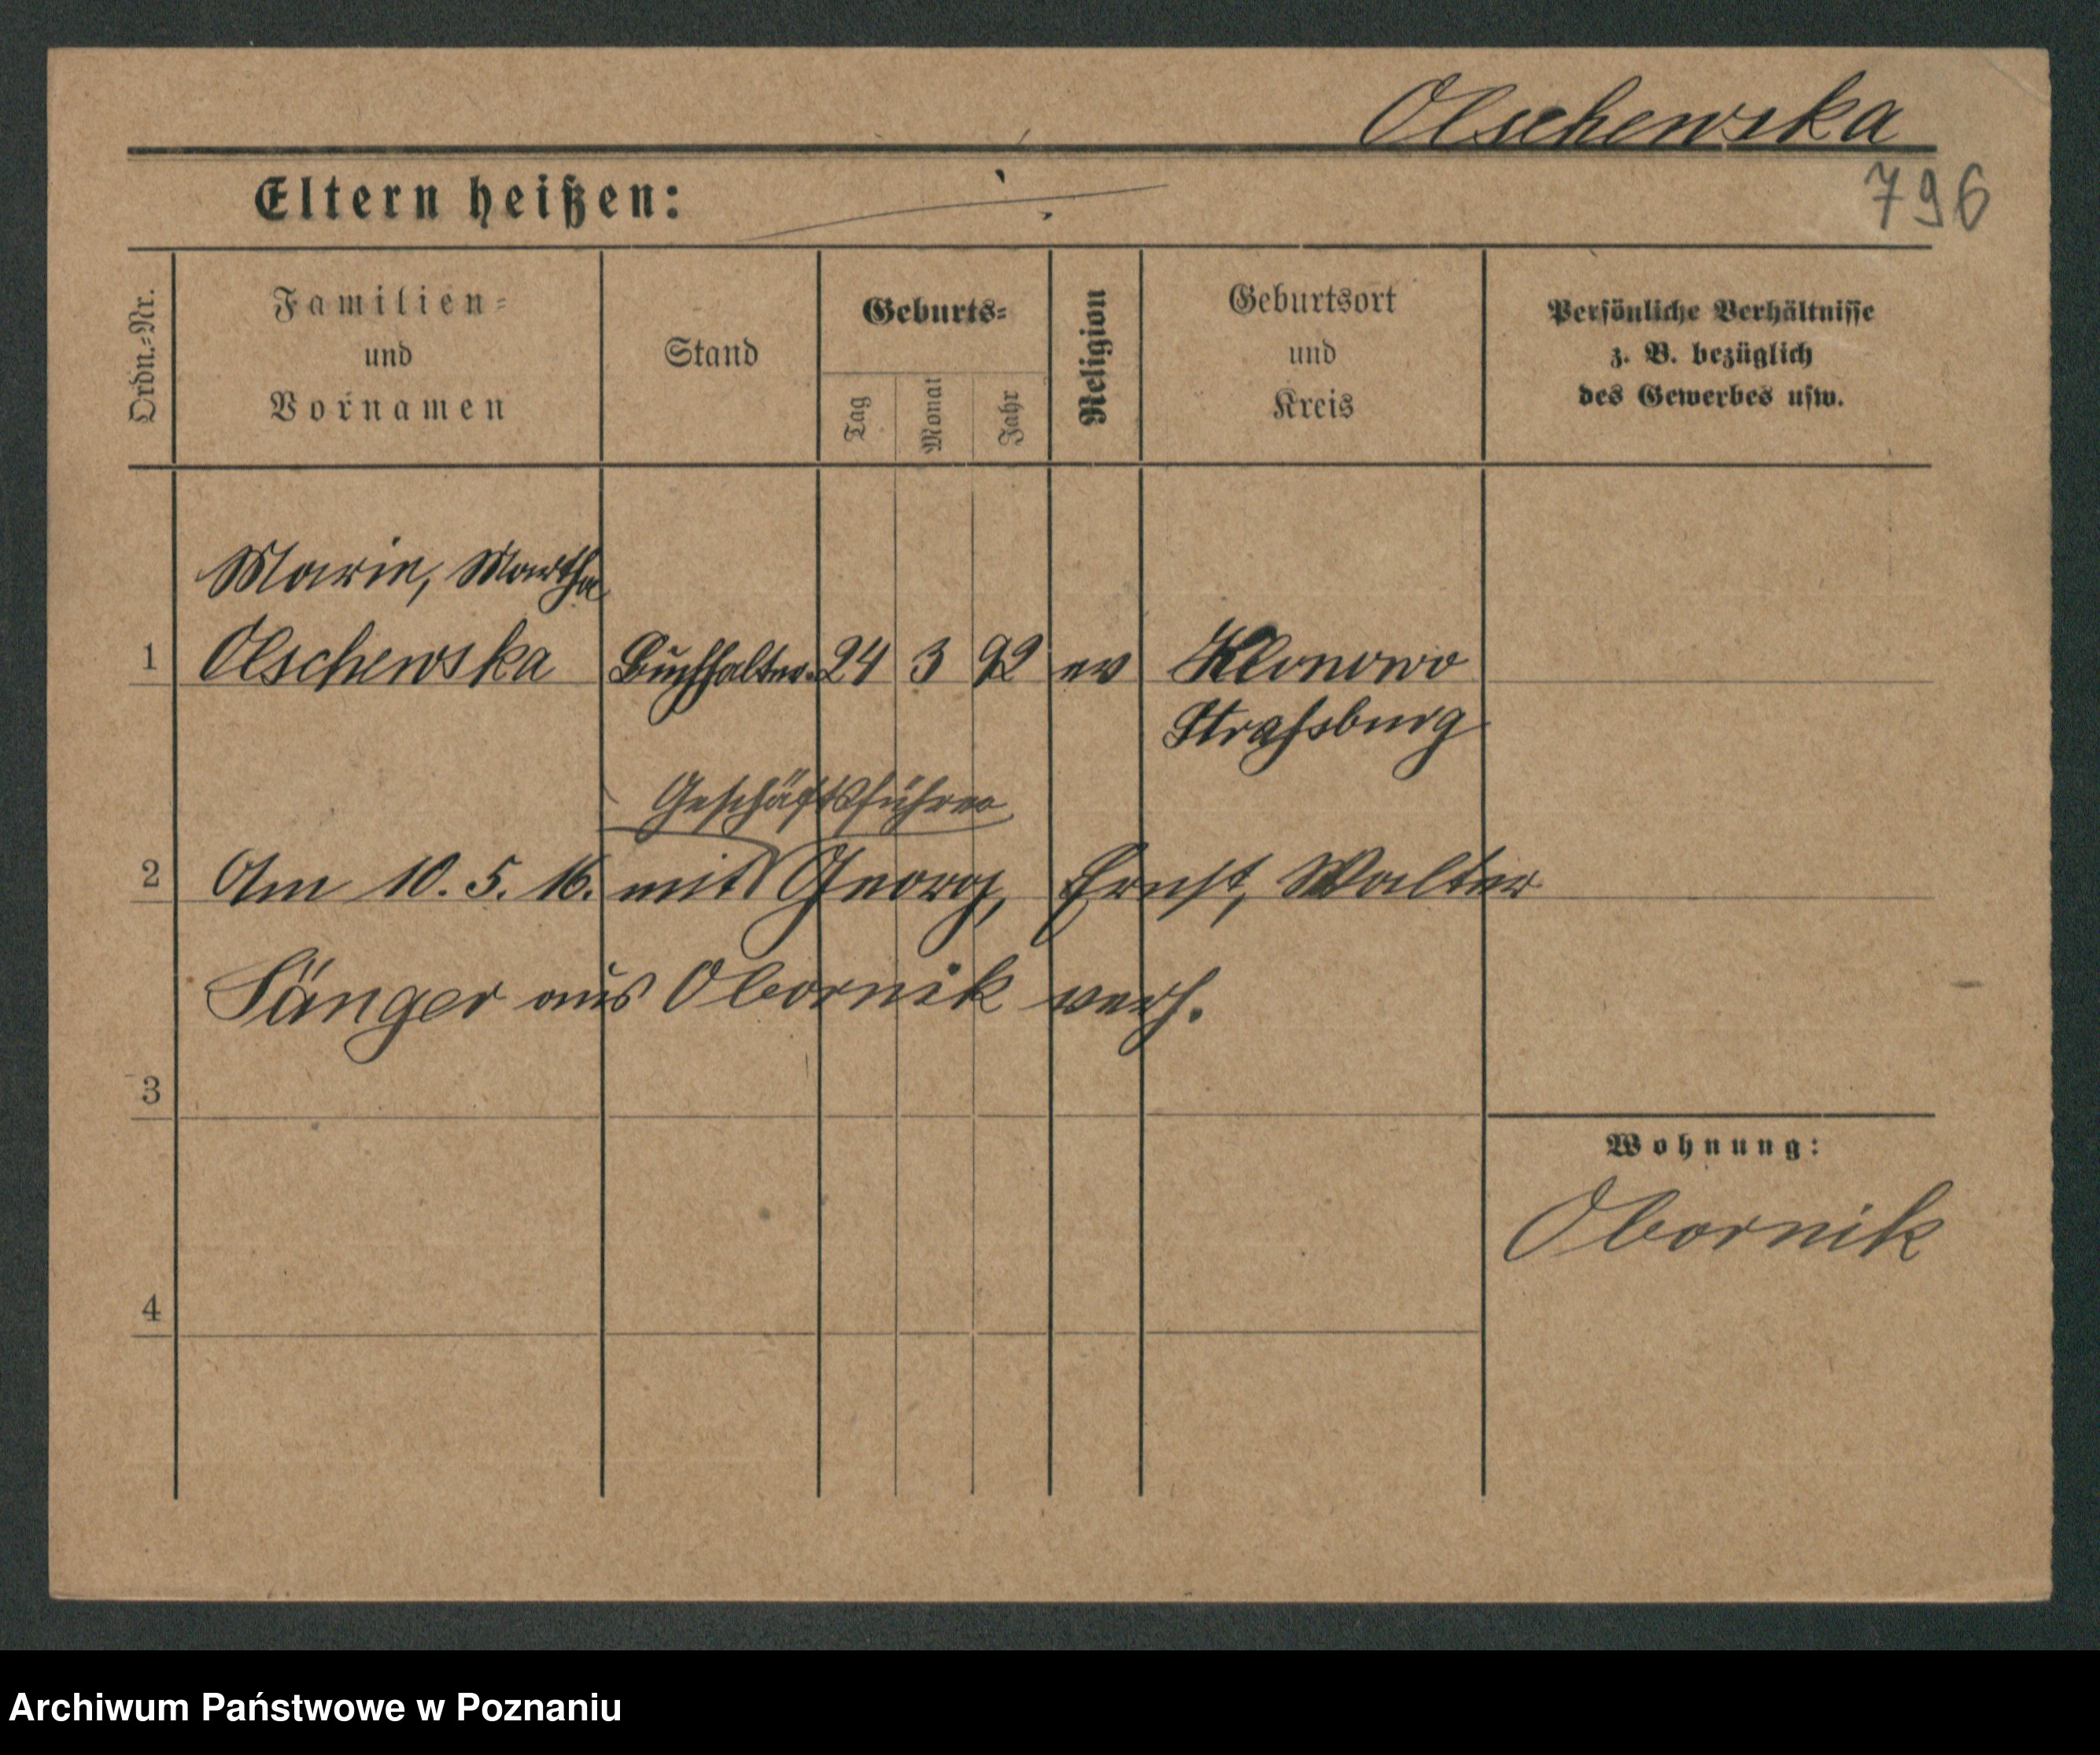 Olschewska
Eltern heißen: ./.
796
Ordn.-Nr.
Familien-
und
Vornamen
Stand
Geburts-
Tag
Monat
Jahr
Religion
Geburtsort
und
Kreis
Persönliche Verhältnisse
z. B. bezüglich
des Gewerbes usw.
Marie, Martha
1 Olschewska Buchhalter. 24 3 92 ev Klonowo
Strassburg
Geschäftsführer
2 Am 10. 5. 16. mit Georg, Ernst, Walter
Sänger aus Obornik verh.
3
Wohnung:
Obornik
4
Archiwum Państwowe w Poznaniu